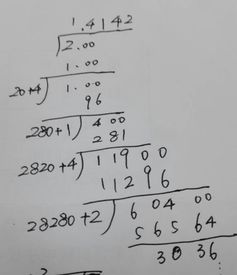 1.4142
2.00
1.00
20+4 1.00
96
280+1 4 00
2 81
2820+4 1 19 0 0
1 12 9 6
28280+2 6 04 00
5 65 64
38 36